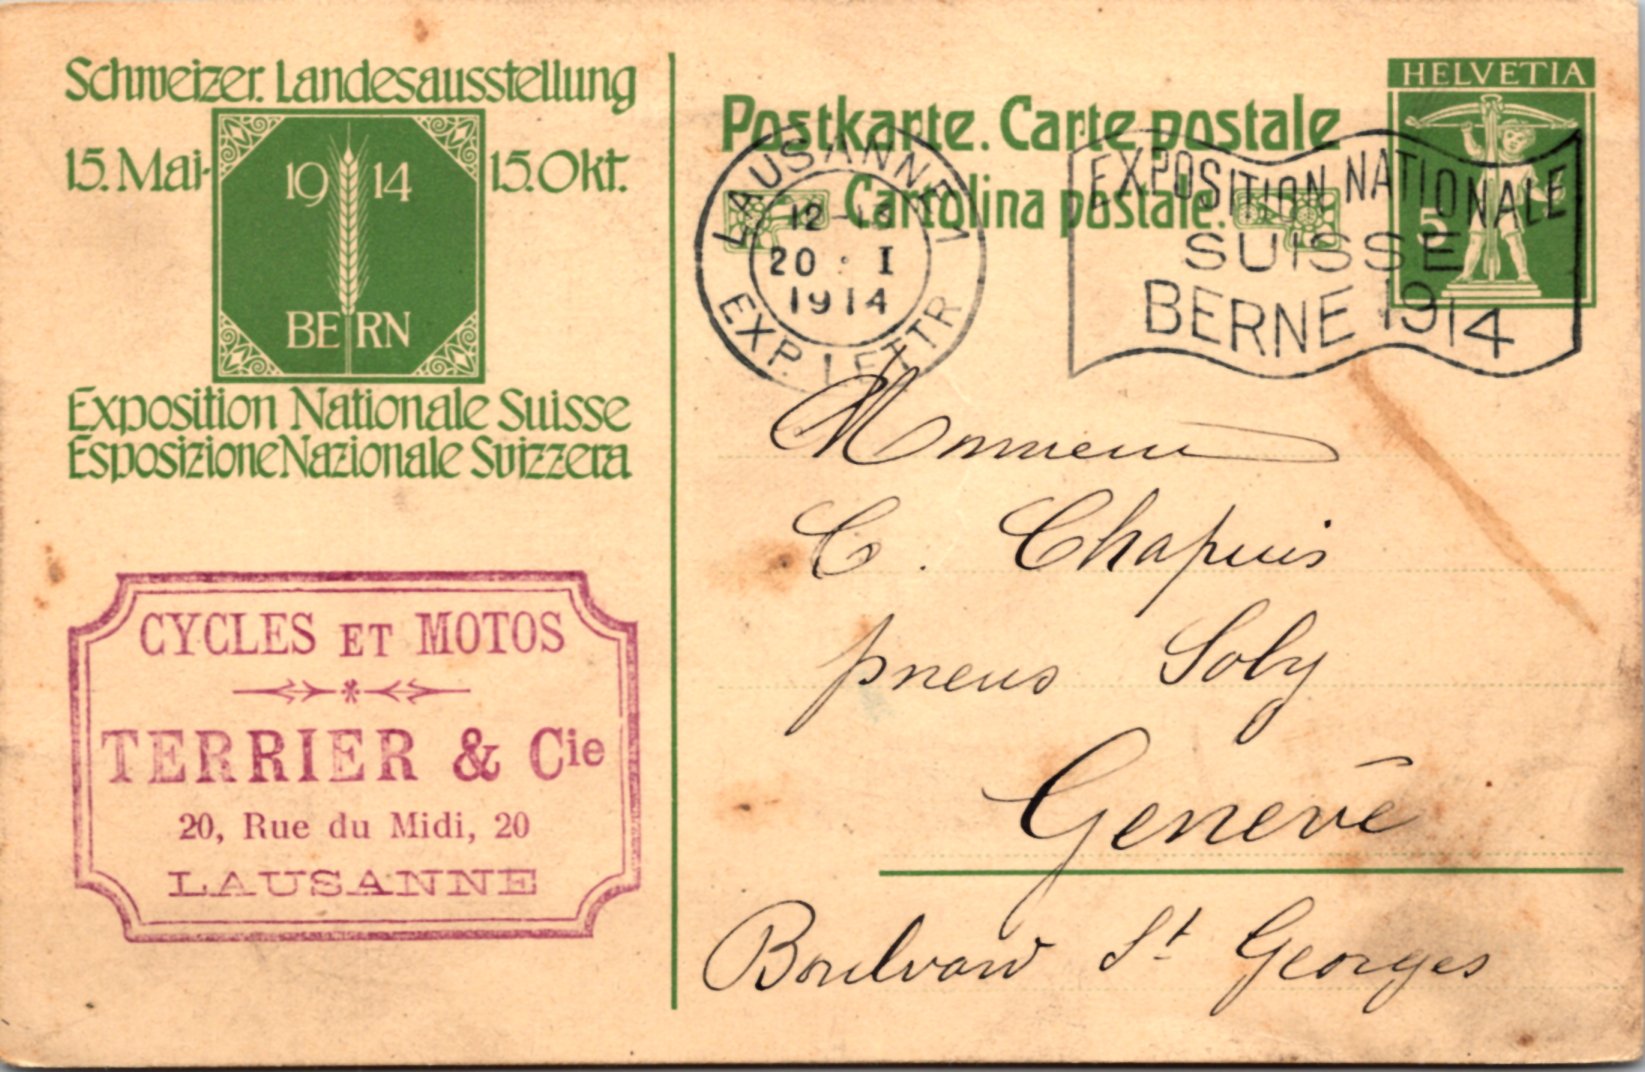 Schweizer. Landesausstellung
15. Mai-15. Okt.
19 14
BERN
Exposition Nationale Suisse
Esposizione Nazionale Svizzera
CYCLES ET MOTOS
TERRIER & Cie
20, Rue du Midi, 20
LAUSANNE
Postkarte. Carte postale
Cartolina postale.
HELVETIA
5
LAUSANNE 1
20 · I
1914
EXP. LETTR
EXPOSITION NATIONALE
SUISSE
BERNE 1914
Monsieur
C. Chapuis
pneus Soly
Genève
Boulvard St Georges